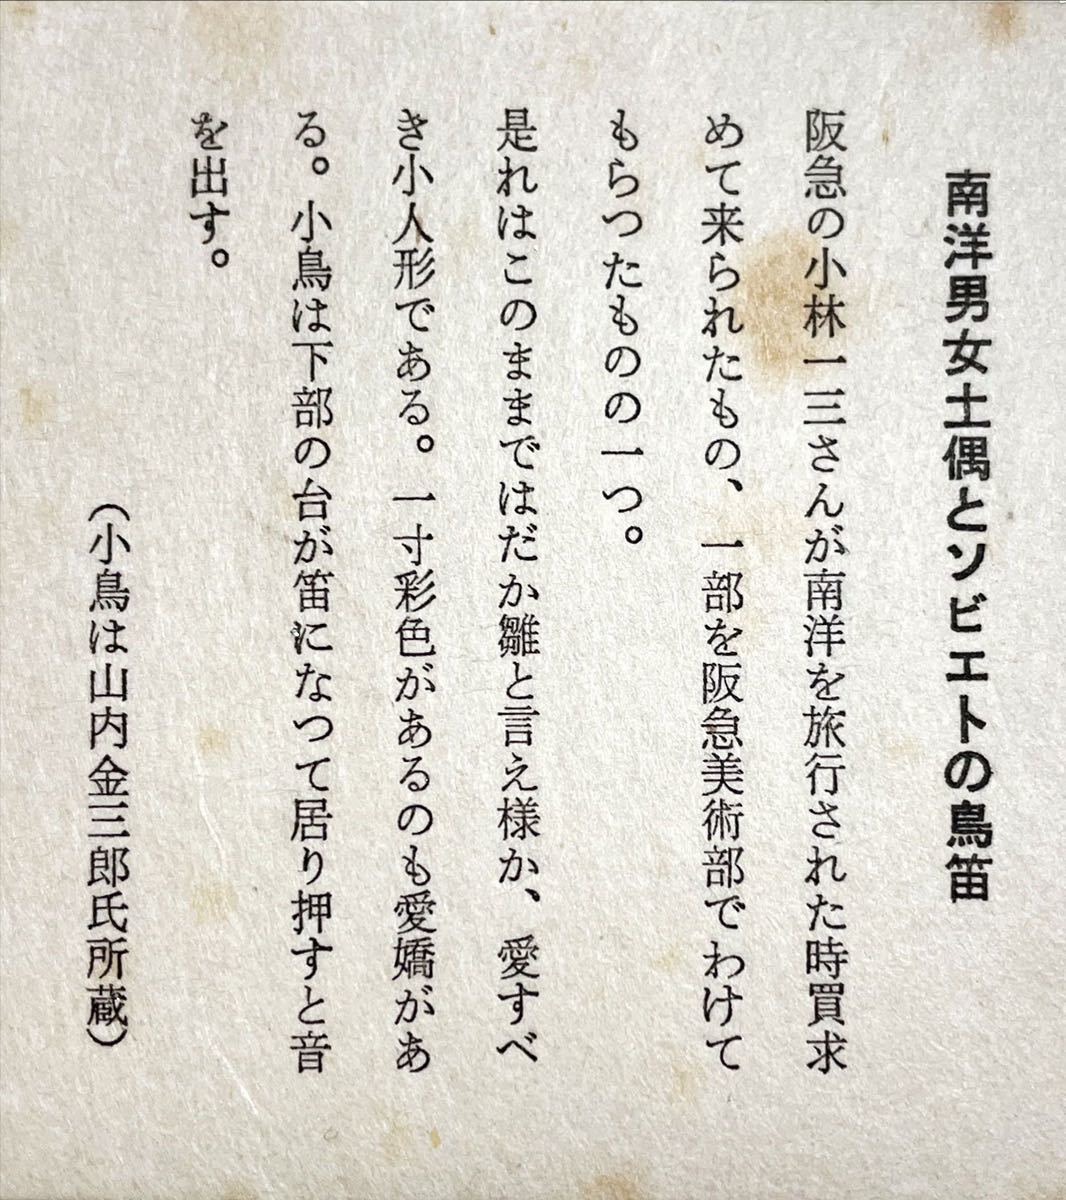 南洋男女土偶とソビエトの鳥笛
阪急の小林一三さんが南洋を旅行された時買求
めて来られたもの、一部を阪急美術部でわけて
もらつたものの一つ。
是れはこのままではだか雛と言え様か、愛すべ
き小人形である。一寸彩色があるのも愛嬌があ
る。小鳥は下部の台が笛になつて居り押すと音
を出す。
（小鳥は山内金三郎氏所蔵）